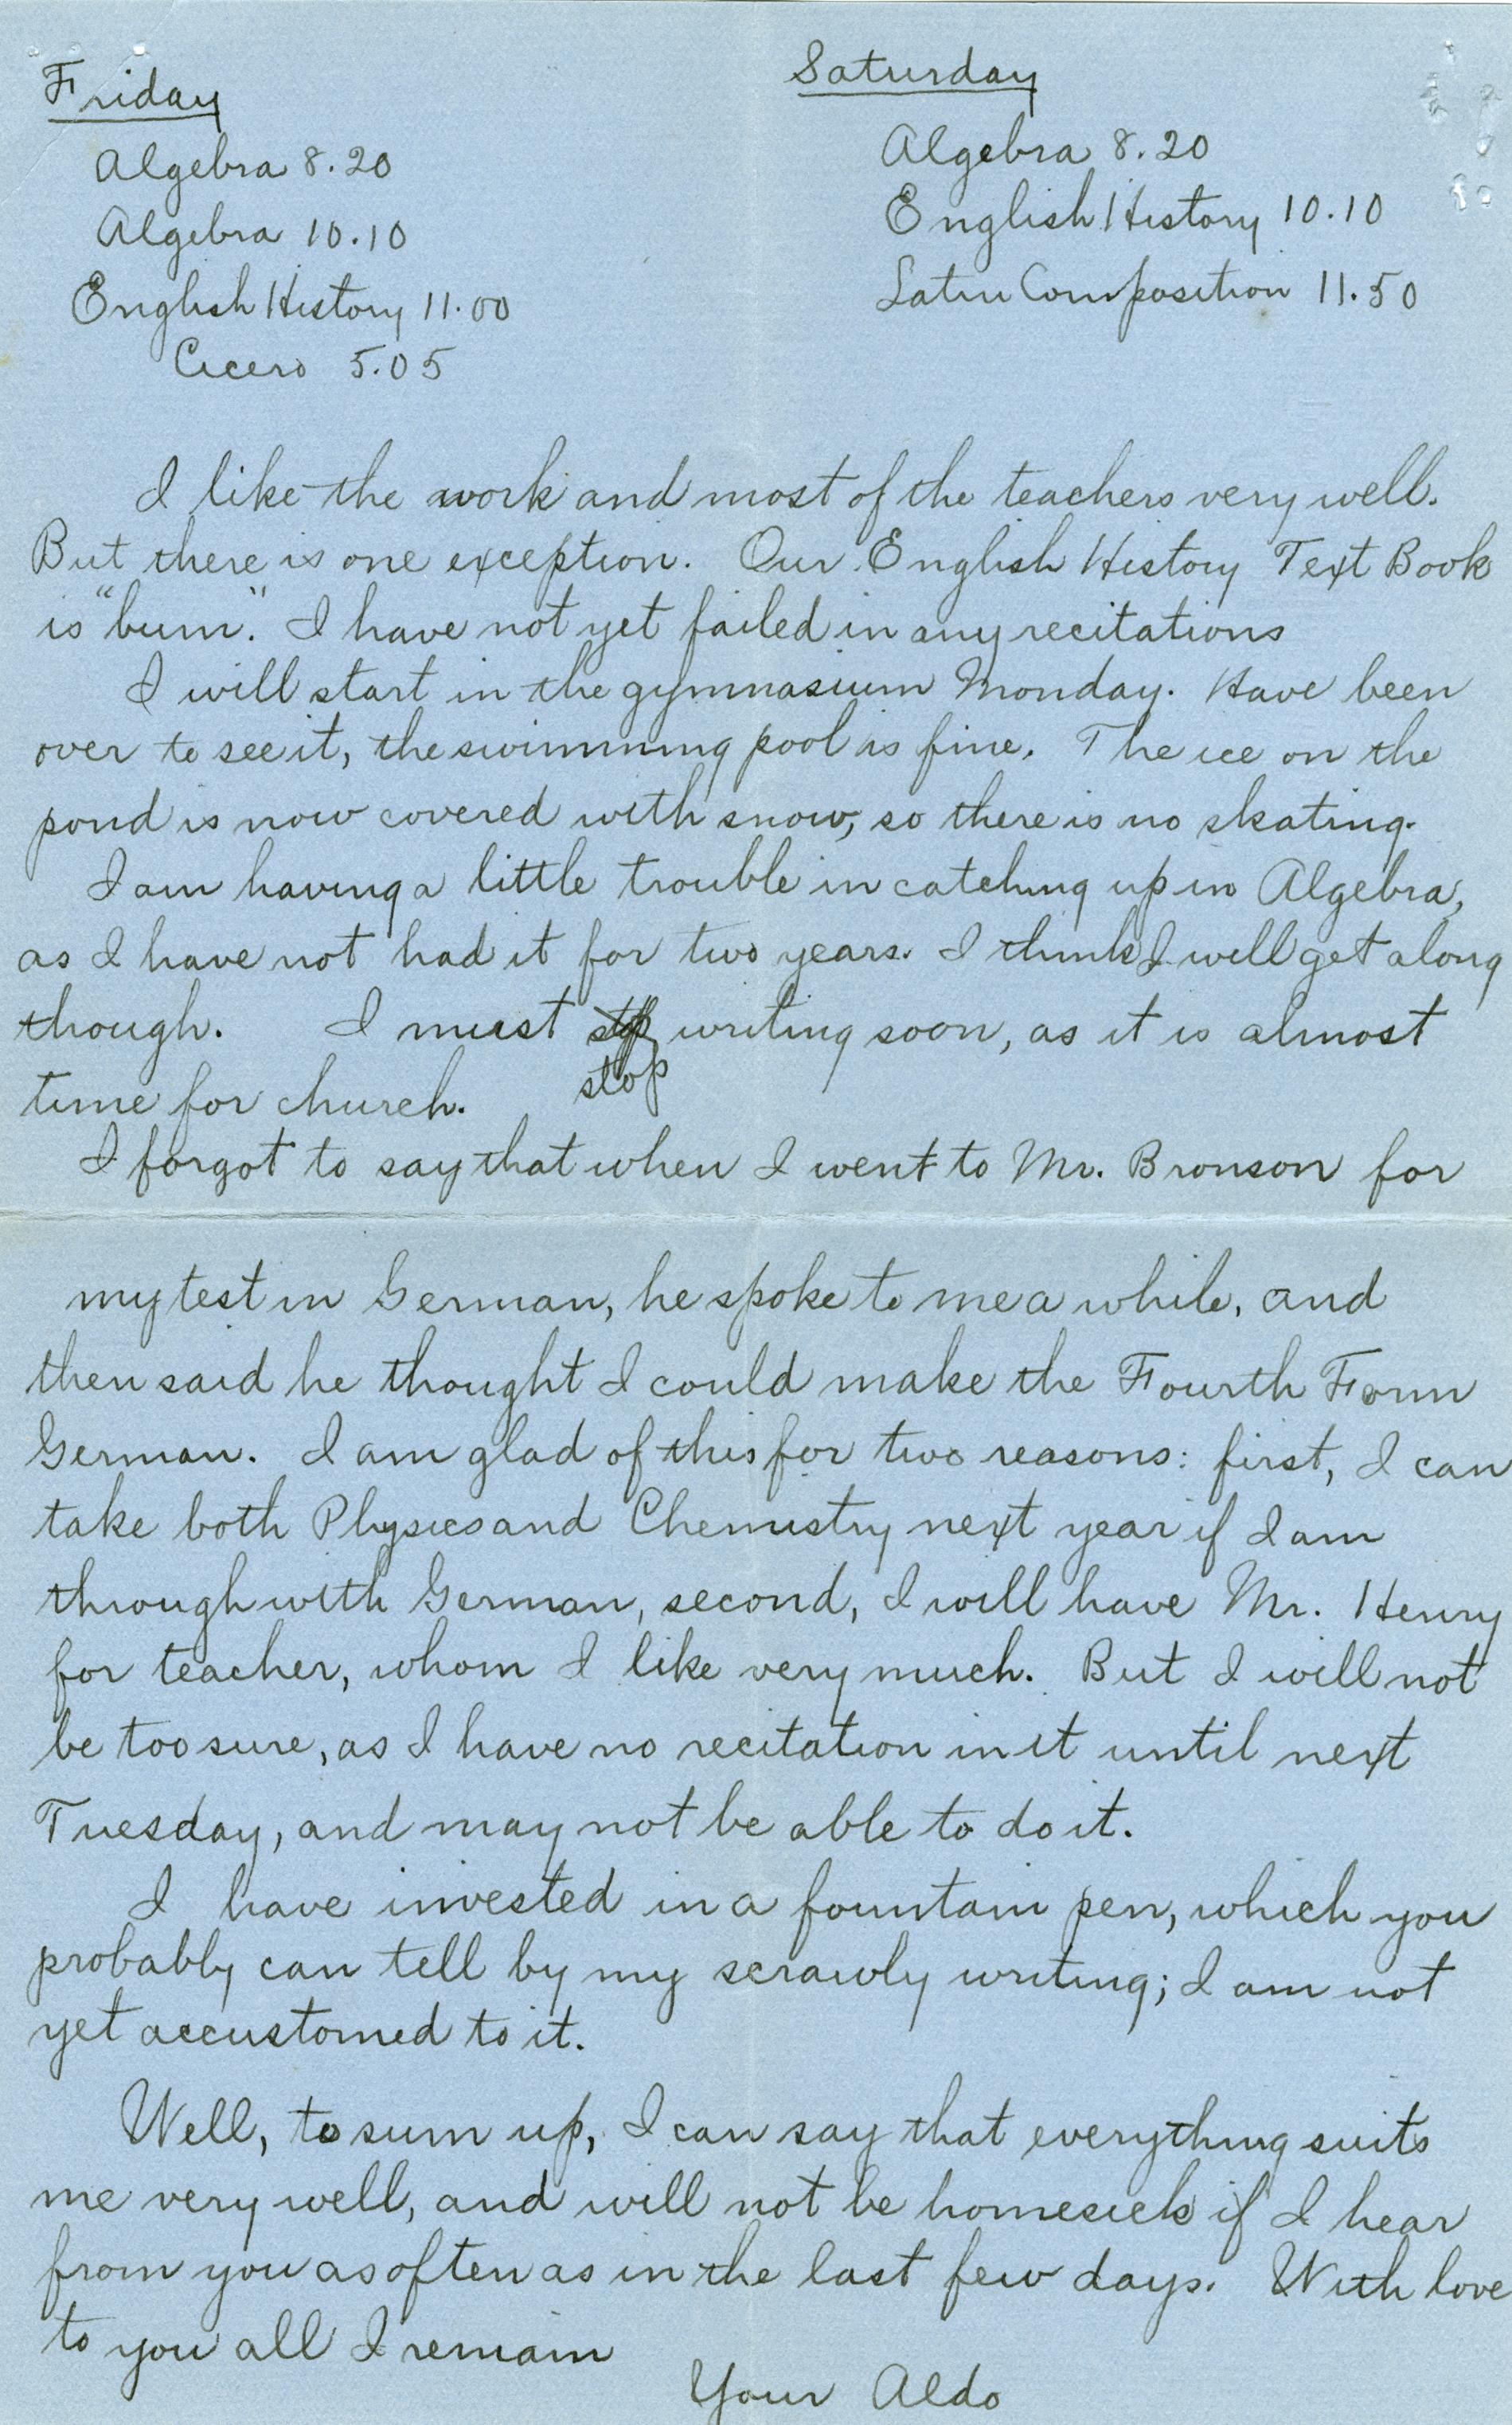 Friday
Algebra 8.20
Algebra 10.10
English History 11.00
Cicero 5.05
Saturday
Algebra 8.20
English History 10.10
Latin Composition 11.50
I like the work and most of the teachers very well.
But there is one exception. Our English History Text Book
is "bum". I have not yet failed in any recitations
I will start in the gymnasium Monday. Have been
over to see it, the swimming pool is fine. The ice on the
pond is now covered with snow, so there is no skating.
I am having a little trouble in catching up in Algebra,
as I have not had it for two years. I think I will get along
though. I must stop writing soon, as it is almost
stop
time for church.
I forgot to say that when I went to Mr. Bronson for
my test in German, he spoke to me a while, and
then said he thought I could make the Fourth Form
German. I am glad of this for two reasons: first, I can
take both Physics and Chemistry next year if I am
through with German, second, I will have Mr. Henry
for teacher, whom I like very much. But I will not
be too sure, as I have no recitation in it until next
Tuesday, and may not be able to do it.
I have invested in a fountain pen, which you
probably can tell by my scrawly writing; I am not
yet accustomed to it.
Well, to sum up, I can say that everything suits
me very well, and will not be homesick if I hear
from you as often as in the last few days. With love
to you all I remain
Your Aldo